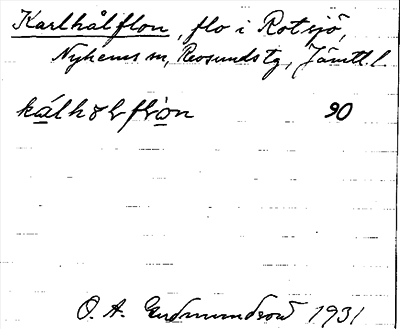 Karlhålflon, flo i Rotsjö,
Nyhems sn, Revsunds tg, Jämtl. l.
kálhålflòn 90
O. A. Gudmundsson 1931